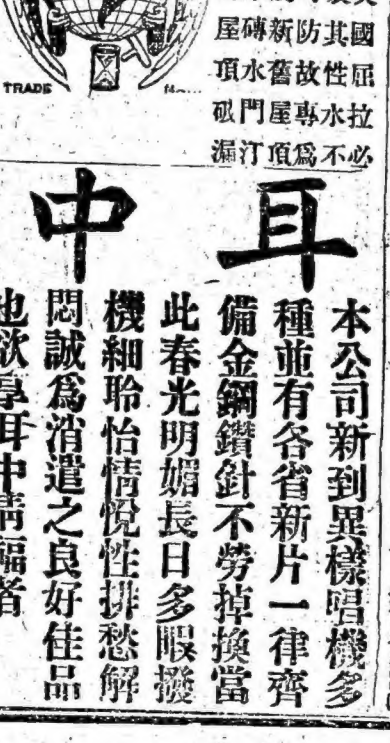 國屈拉必
其性水不
防故專爲
新舊屋頂
磚水門汀
屋頂破漏
TRADE
耳中
本公司新到異樣唱機多
種並有各省新片一律齊
備金鋼鑽針不勞掉換當
此春光明媚長日多暇撥
機細聆怡情悅性排愁解
悶誠爲消遣之良好佳品
也欲享耳中清福者